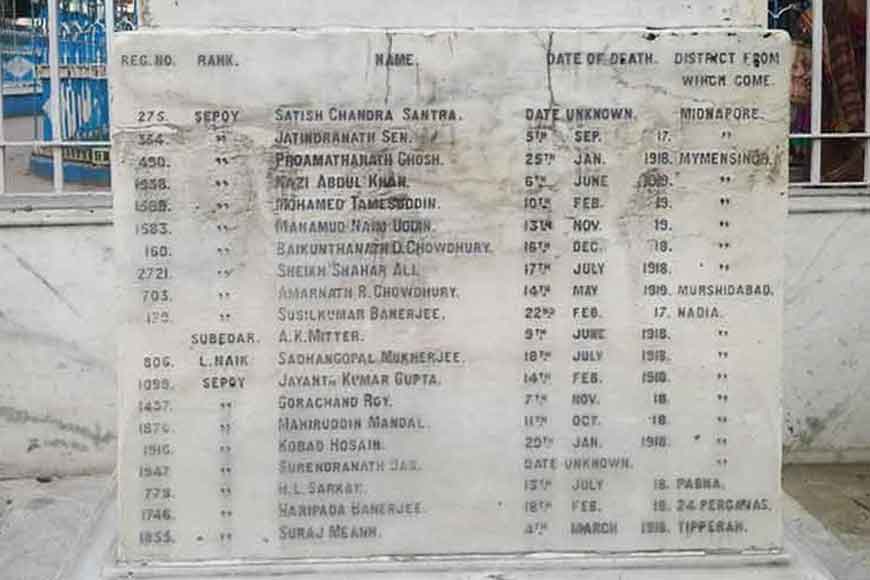 REG. NO. RANK. NAME. DATE OF DEATH. DISTRICT FROM
WHICH COME.
275. SEPOY SATISH CHANDRA SANTRA. DATE UNKNOWN. MIDNAPORE.
364. " JATINDRANATH SEN. 5TH SEP. 17. "
490. " PROAMATHANATH GHOSH. 25TH JAN. 1918. MYMENSINGH.
" KAZI ABDUL KHAN. 6TH JUNE 1919. "
" MOHAMED TAMESUDDIN. 10TH FEB. 19. "
1583. " MAHAMUD NAIM UDDIN. 13TH NOV. 19. "
160. " BAIKUNTHANATH D. CHOWDHURY. 16TH DEC. 18. "
2721. " SHEIKH SHAHAR ALI. 17TH JULY 1918. "
703. " AMARNATH R. CHOWDHURY. 14TH MAY 1919. MURSHIDABAD.
" SUSILKUMAR BANERJEE. 22ND FEB. 17. NADIA.
SUBEDAR. A. K. MITTER. 9TH JUNE 1918. "
806. L. NAIK SADHANGOPAL MUKHERJEE. 18TH JULY 1918. "
1099. SEPOY JAYANTA KUMAR GUPTA. 14TH FEB. 1918. "
1457. " GORACHAND ROY. 7TH NOV. 18. "
1876. " MAHIRUDDIN MANDAL. 11TH OCT. 18. "
1916. " KOBAD HOSAIN. JAN. 1918. "
1947. " SURENDRANATH DAS. DATE UNKNOWN. "
778. " H. L. SARKAR. 15TH JULY 18. PABNA.
1746. " HARIPADA BANERJEE. 18TH FEB. 18. 24 PERGANAS.
1855. " SURAJ MEANH. 4TH MARCH 1918. TIPPERAH.